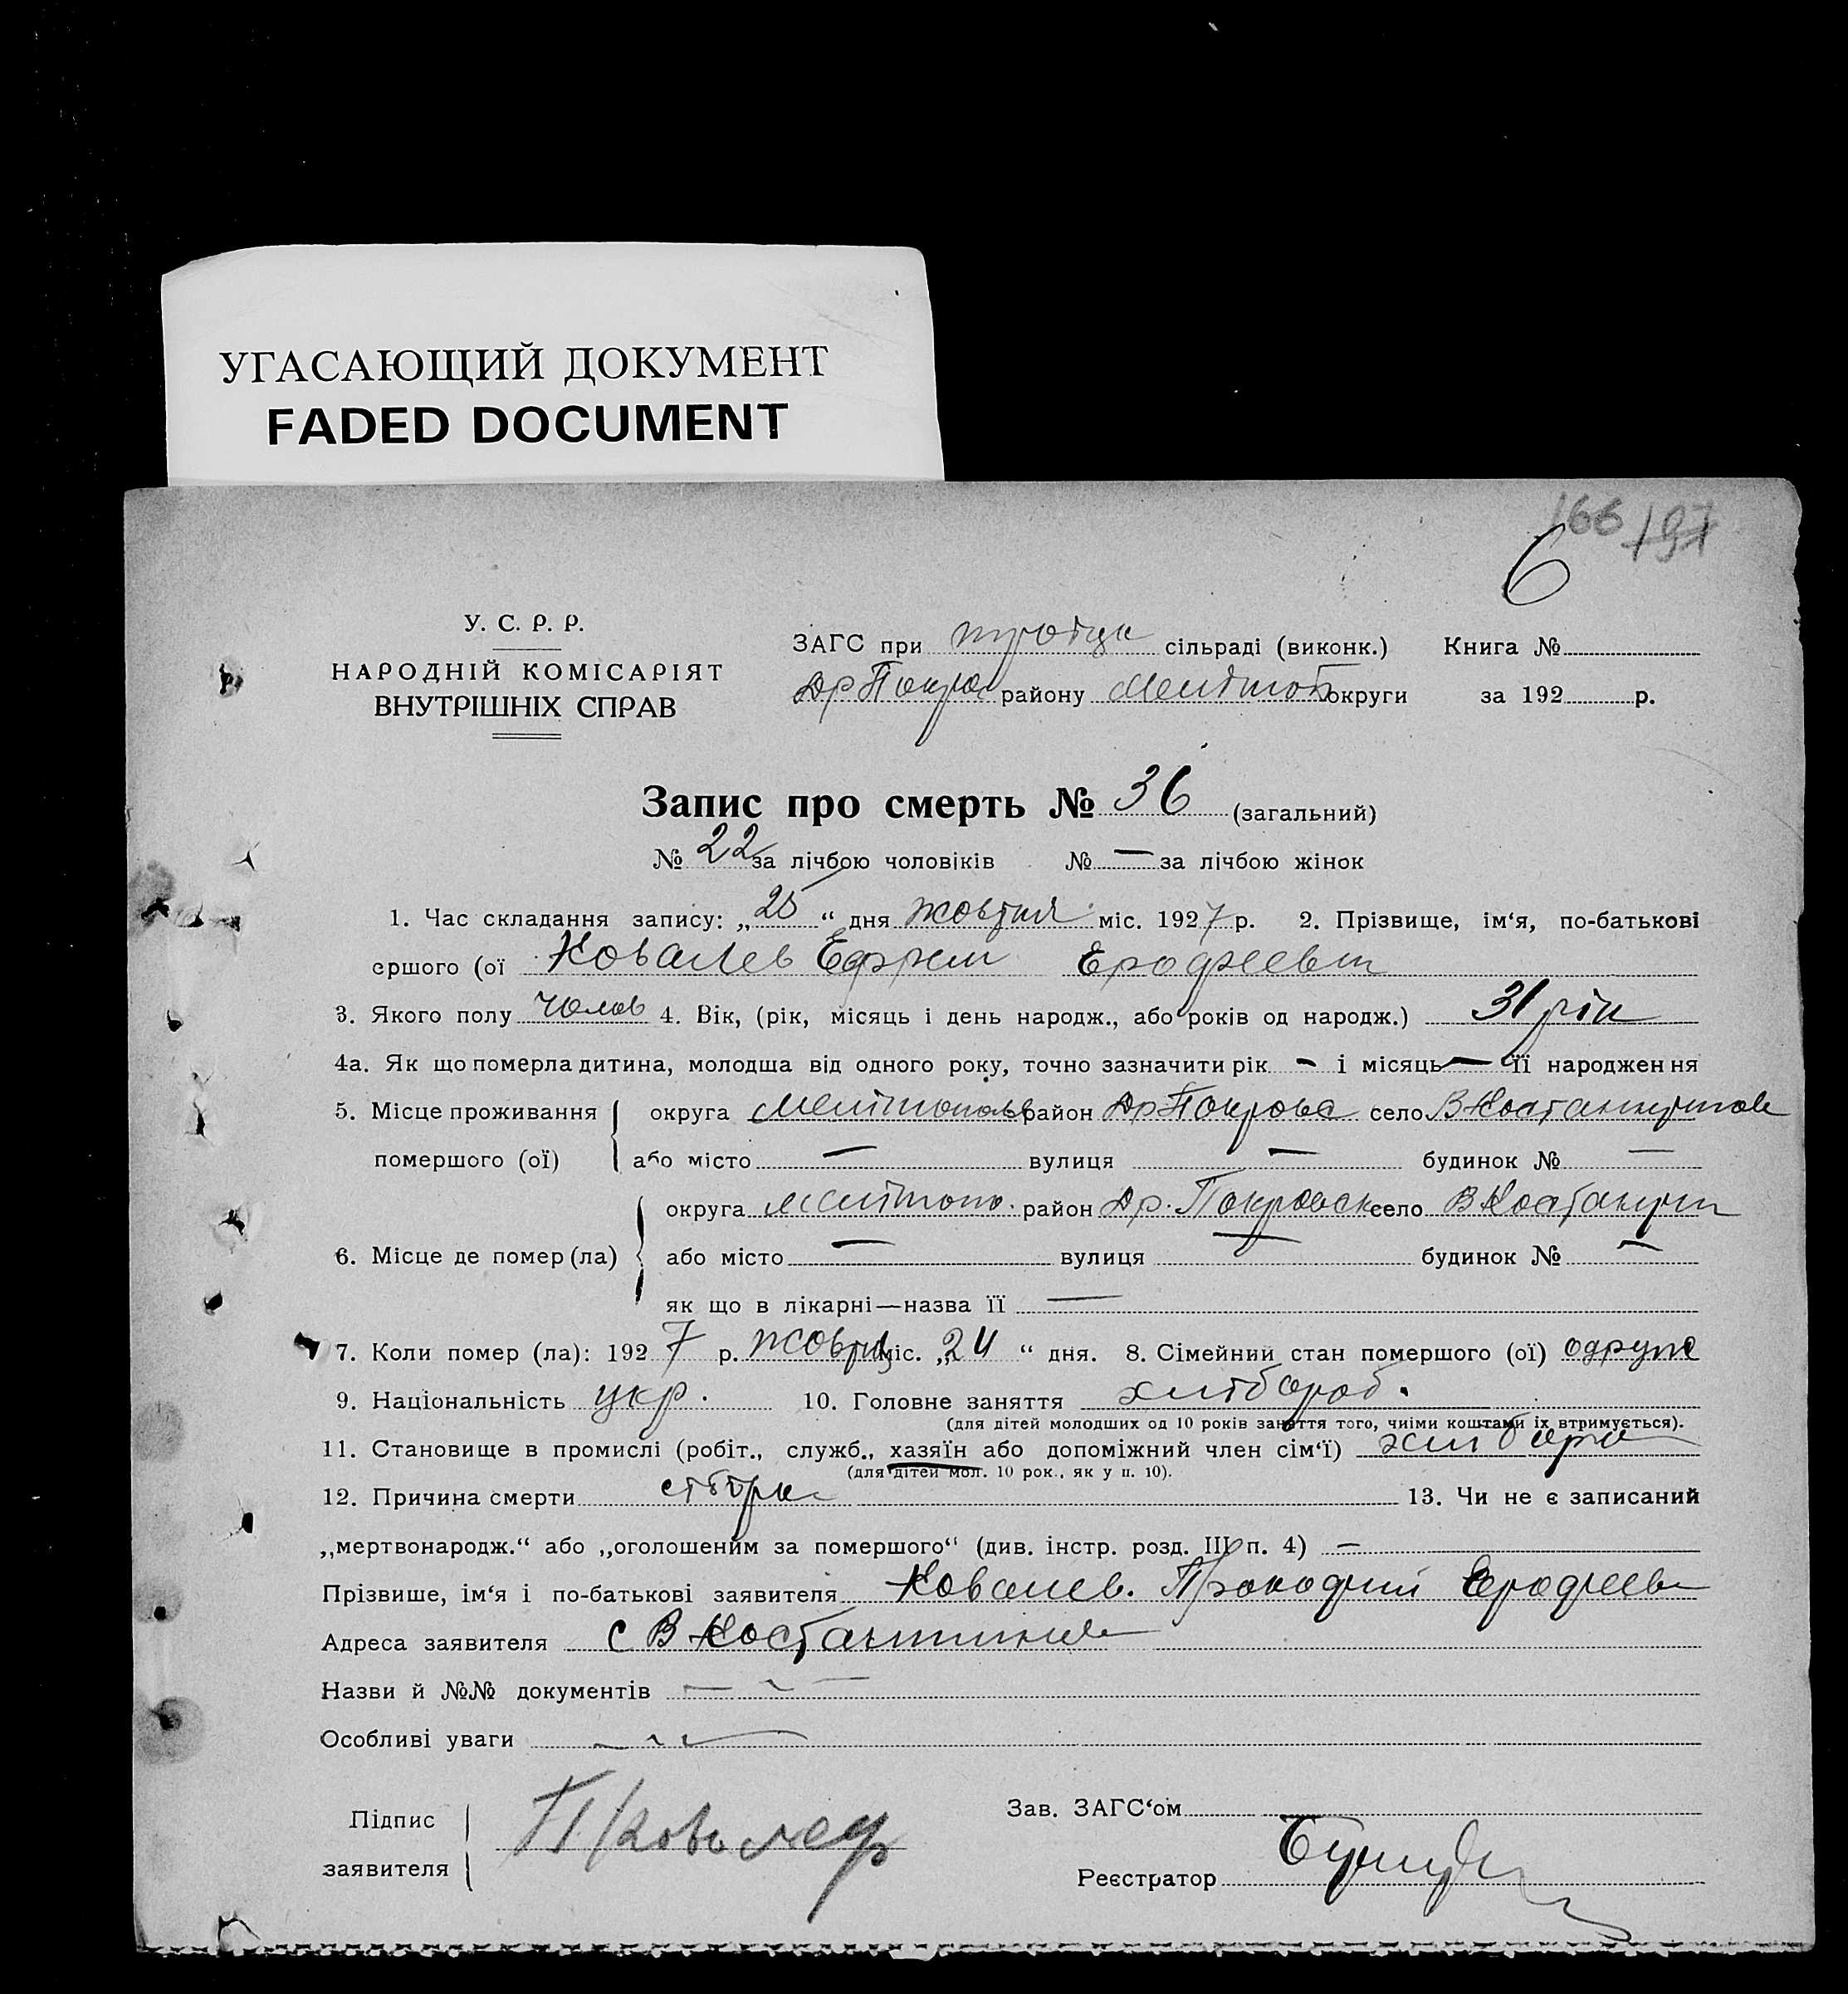 УГАСАЮЩИЙ ДОКУМЕНТ
FADED DOCUMENT
166 197
6
У. С. Р. Р.
НАРОДНІЙ КОМІСАРІЯТ
ВНУТРІШНІХ СПРАВ
ЗАГС при сільраді (виконк.) Книга №
Др Покров району Мелітоп округи за 192 р.
Запис про смерть № 36 (загальний)
№ 22 за лічбою чоловіків № — за лічбою жінок
1. Час складання запису: „25“ дня жовтня міс. 1927 р. 2. Прізвище, ім‘я, по-батькові
ершого (ої Ковалев Ефрем Ерофеевич
3. Якого полу Чолов 4. Вік, (рік, місяць і день народж., або років од народж.) 31 рік
4а. Як що померла дитина, молодша від одного року, точно зазначити рік – і місяць — її народження
5. Місце проживання округа Мелітополь район Др Покровс село В Костантинов
помершого (ої) або місто — вулиця — будинок № —
округа Мелітопо. район Др. Покровск село В Костантин
6. Місце де помер (ла) або місто — вулиця — будинок № —
як що в лікарні—назва її —
7. Коли помер (ла): 1927 р. жовтня міс. „24“ дня. 8. Сімейний стан помершого (ої) одруже
9. Національність укр. 10. Головне заняття хлібороб.
(для дітей молодших од 10 років заняття того, чиіми коштами їх втримується).
11. Становище в промислі (робіт., служб., хазяїн або допоміжний член сім‘ї)
(для дітей мол. 10 рок., як у п. 10).
12. Причина смерти 13. Чи не є записаний
„мертвонародж.“ або „оголошеним за помершого“ (див. інстр. розд. III п. 4) —
Прізвише, ім‘я і по-батькові заявителя Ковалев. Ерофеев
Адреса заявителя с В Костантинов
Назви й №№ документів — ~ —
Особливі уваги
Підпис
заявителя П Ковалев
Зав. ЗАГС‘ом
Реєстратор